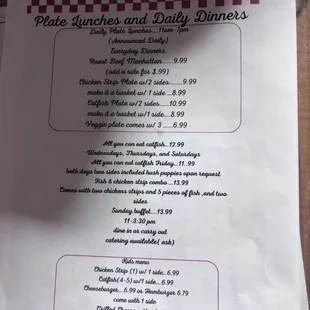 Plate Lunches and Daily Dinners
Daily Plate Lunches....11am-7pm
(Announced Daily)
Everyday Dinners
Roast Beef Manhattan......9.99
(add a side for $.99)
Chicken Strip Plate w/2 sides.......9.99
make it a basket w/ 1 side ..8.99
Catfish Plate w/2 sides.....10.99
make it a basket w/1 side....8.99
Veggie plate comes w/ 3 .....6.99
All you can eat catfish...12.99
Wednesdays, Thursdays, and Saturdays
All you can eat catfish Friday...11..99
both days two sides included hush puppies upon request
Fish & chicken strip combo ...13.99
Comes with two chickens strips and 5 pieces of fish ,and two
sides
Sunday buffet....13.99
11-3:30 pm
dine in or carry out
catering available( ask)
Kids menu
Chicken Strip (1) w/1 side..6.99
Catfish(4-5) w/1 side...6.99
Cheeseburger...6.99 or Hamburger 6.79
come with 1 side